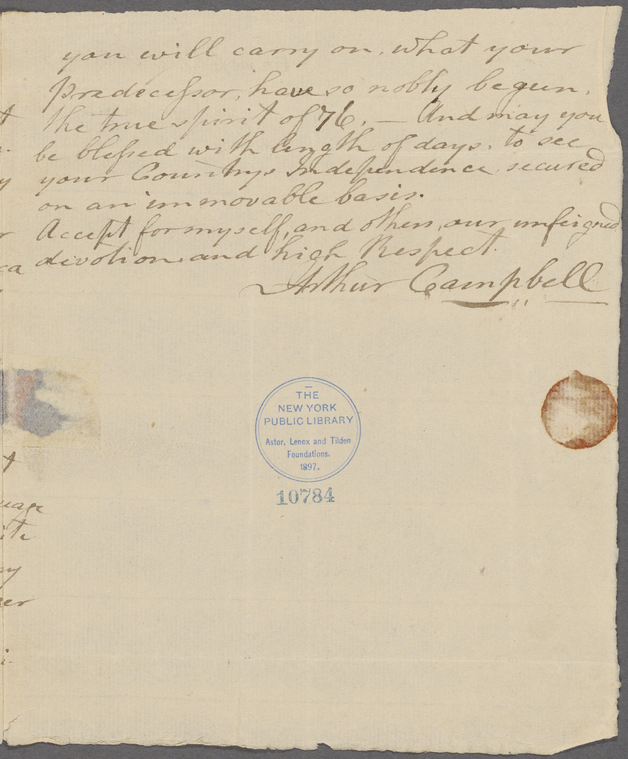 you will carry on, what your
Predecessor, have so nobly begun,
the true spirit of 76. — And may you
be blessed with length of days, to see
your Countrys Independence secured
on an immovable basis.
Accept for myself, and others, our unfeigned
devotion and high Respect.
Arthur Campbell
THE
NEW YORK
PUBLIC LIBRARY
Astor, Lenox and Tilden
Foundations.
1897.
10784